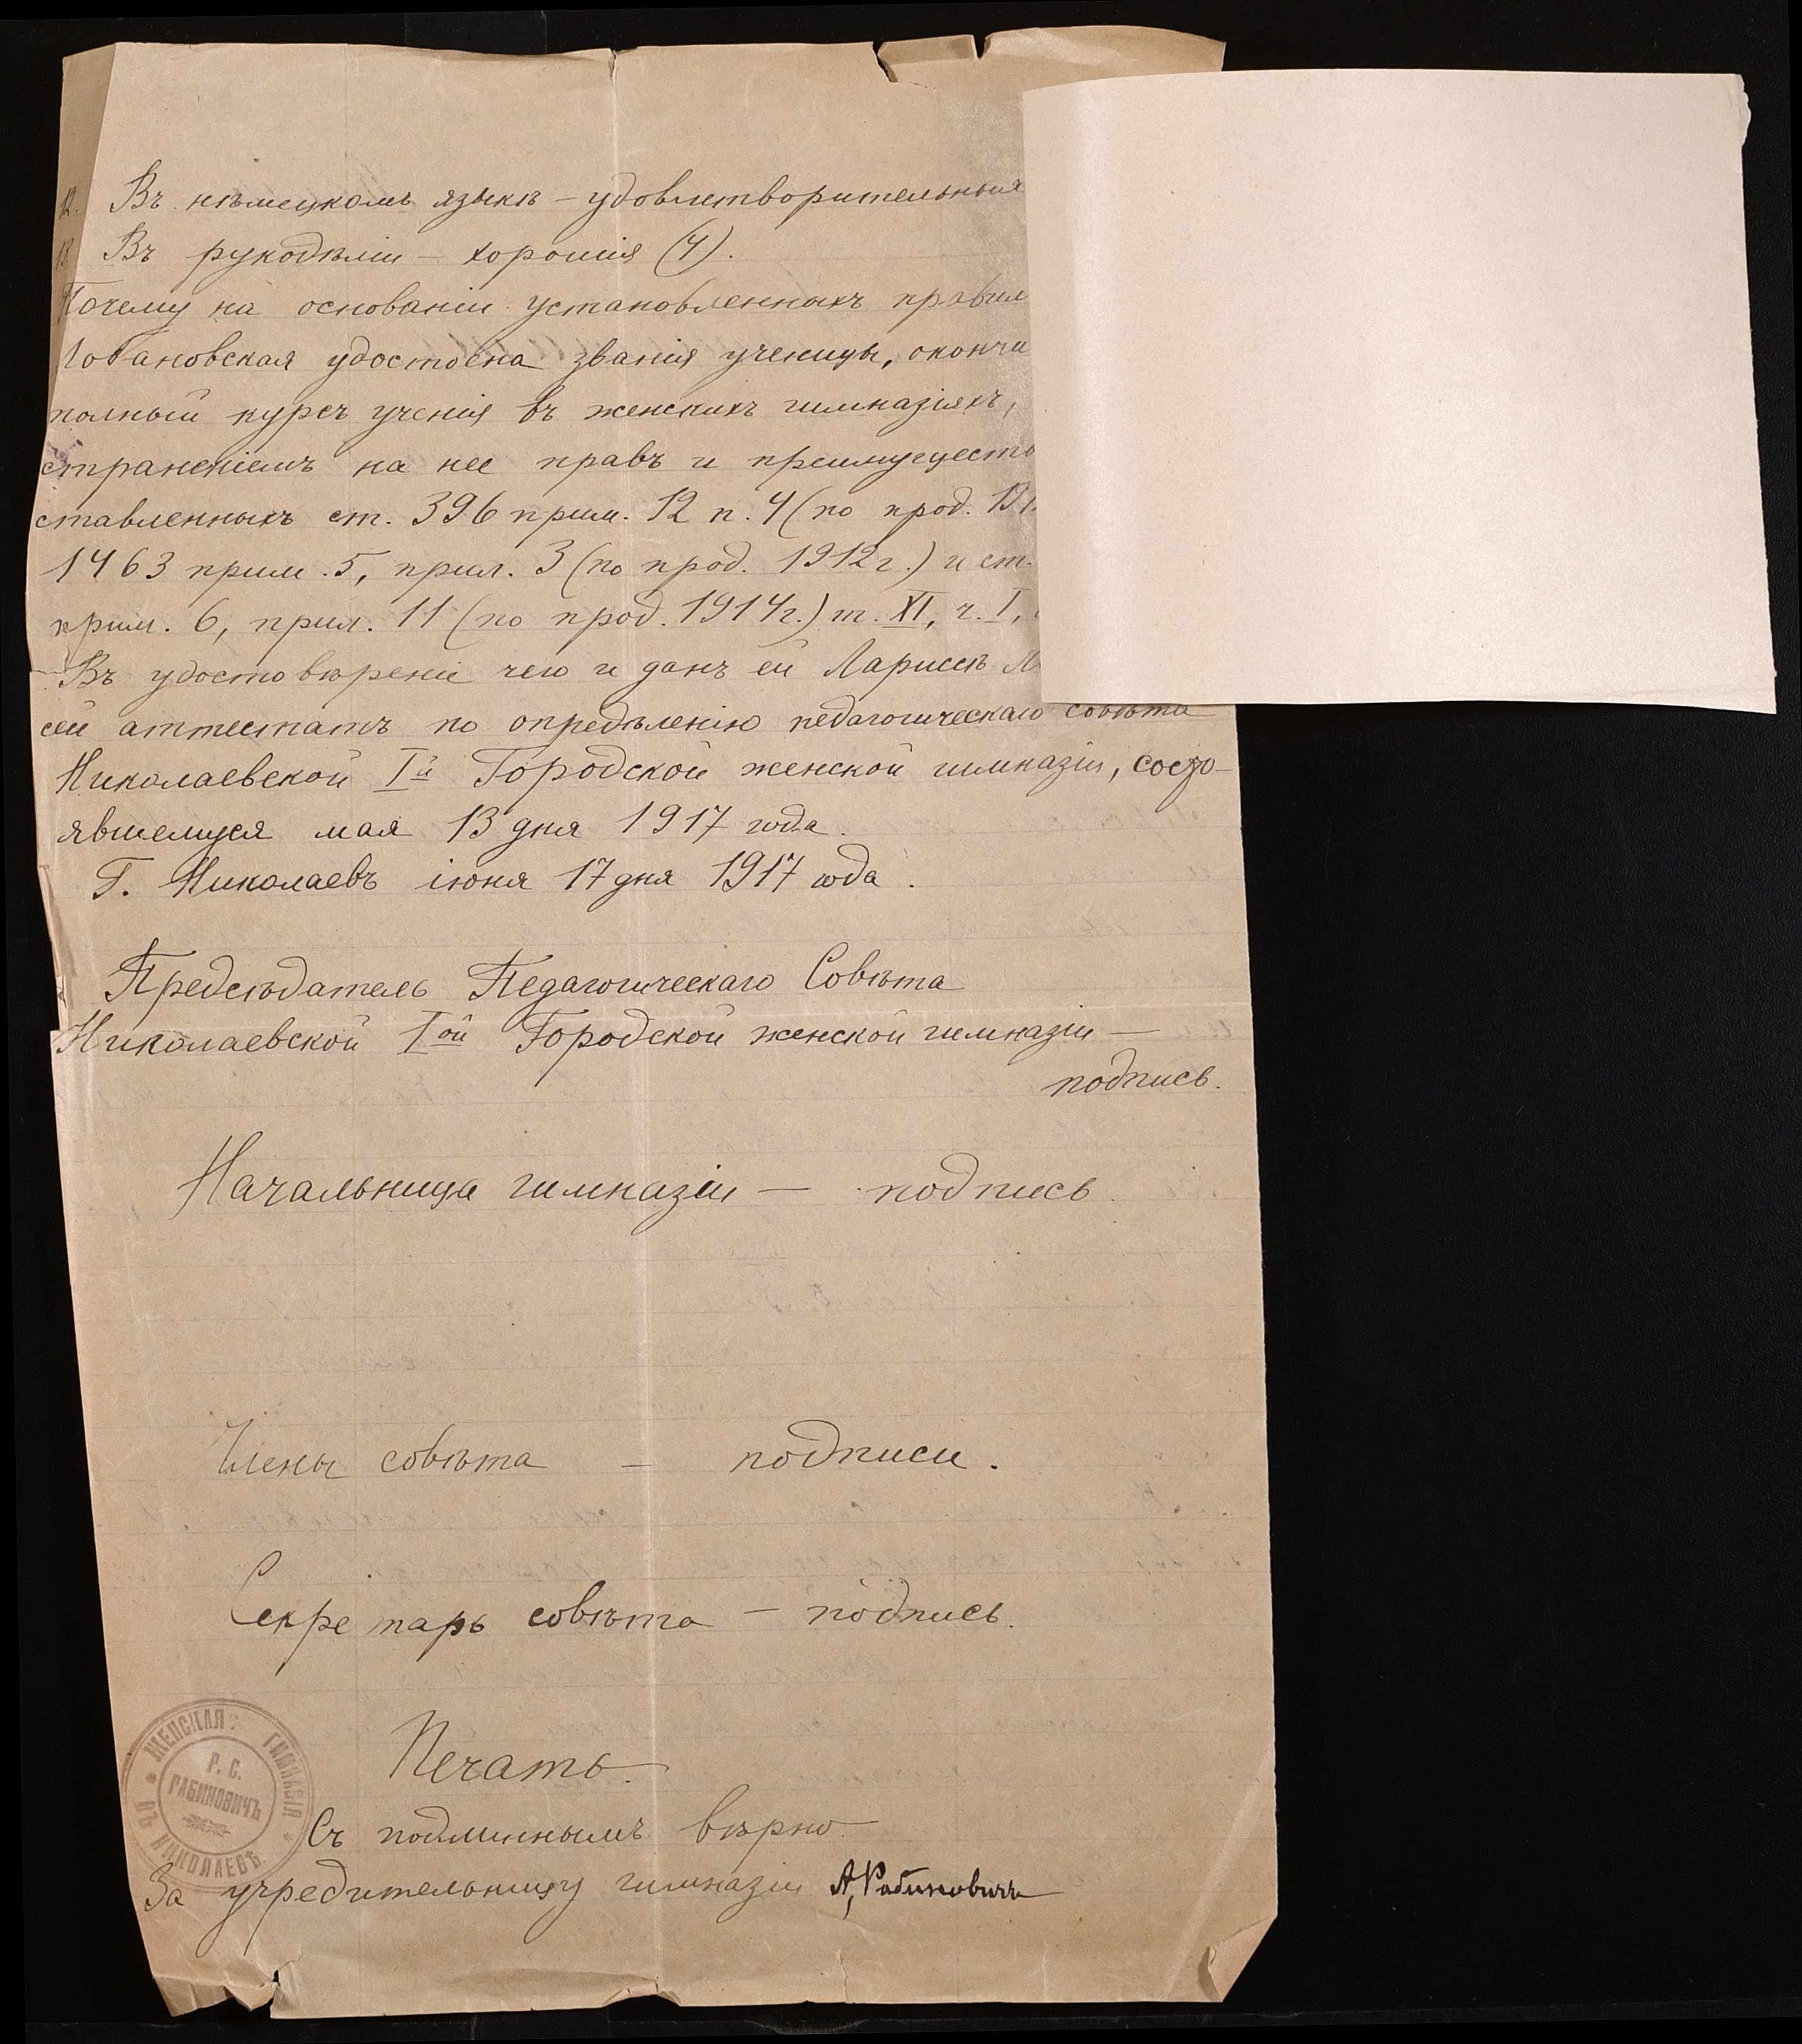 12. Въ нѣмецкомъ языкѣ – удовлетворительныя
13. Въ рукодѣліи – хорошія (4).
Почему на основаніи установленныхъ правил
Лобановская удостоена званія ученицы, окончи
полный курсъ ученія въ женскихъ гимназіяхъ,
страненіемъ на нее правъ и преимуществ
ставленныхъ ст. 396 прим. 12 п. 4 (по прод. 191
1463 прим. 5, прил. 3 (по прод. 1912 г.) и ст.
прим. 6, прил. 11 (по прод. 1914 г.) т. XI, ч. I,
Въ удостовѣреніе чего и данъ ей Лариссѣ Л
сей аттестатъ по опредѣленію педагогическаго совѣта
Николаевской Iй Городской женской гимназіи, состо-
явшемуся мая 13 дня 1917 года.
Г. Николаевъ іюня 17 дня 1917 года.
Предсѣдатель Педагогическаго Совѣта
Николаевской Iой Городской женской гимназіи —
подпись.
Начальница гимназіи — подпись.
Члены совѣта — подписи.
Секретарь совѣта — подпись.
Печать.
ЖЕНСКАЯ ГИМНАЗІЯ * ВЪ НИКОЛАЕВѢ *
Р. С.
РАБИНОВИЧЪ
Съ подлиннымъ вѣрно
За учредительницу гимназіи А, Рабиновичъ